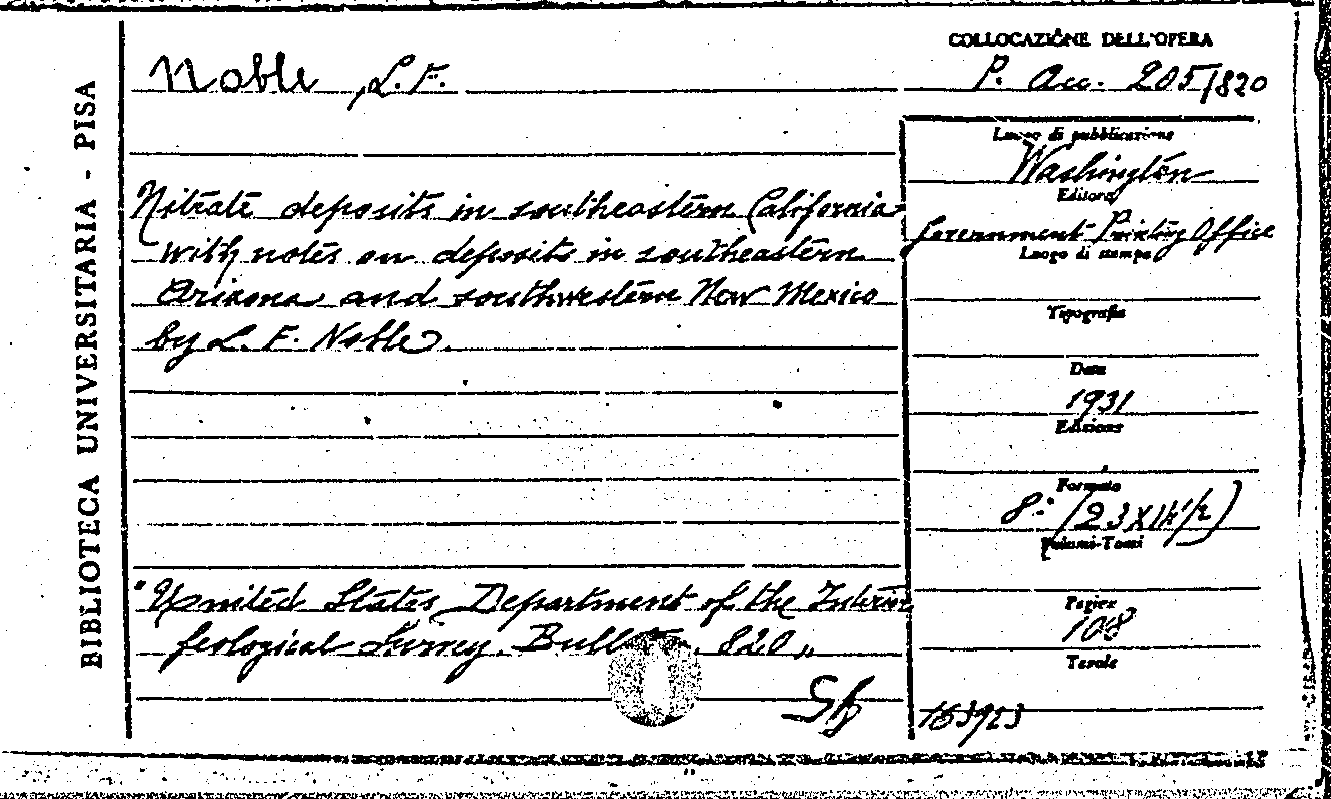 BIBLIOTECA UNIVERSITARIA - PISA
Noble, L. F.
COLLOCAZIONE DELL'OPERA
P. Acc. 205/820
Nitrate deposits in southeastern California
with notes on deposits in southeastern
Arizona and southwestern New Mexico
by L. F. Noble.
"United States Department of the Interior
Geological Survey. Bull 820"
Luogo di pubblicazione
Washington
Editore
Government Printing Office
Luogo di stampa
Tipografia
Data
1931
Edizione
Formato
8.° (23x14½)
Volumi-Tomi
Pagine
108
Tavole